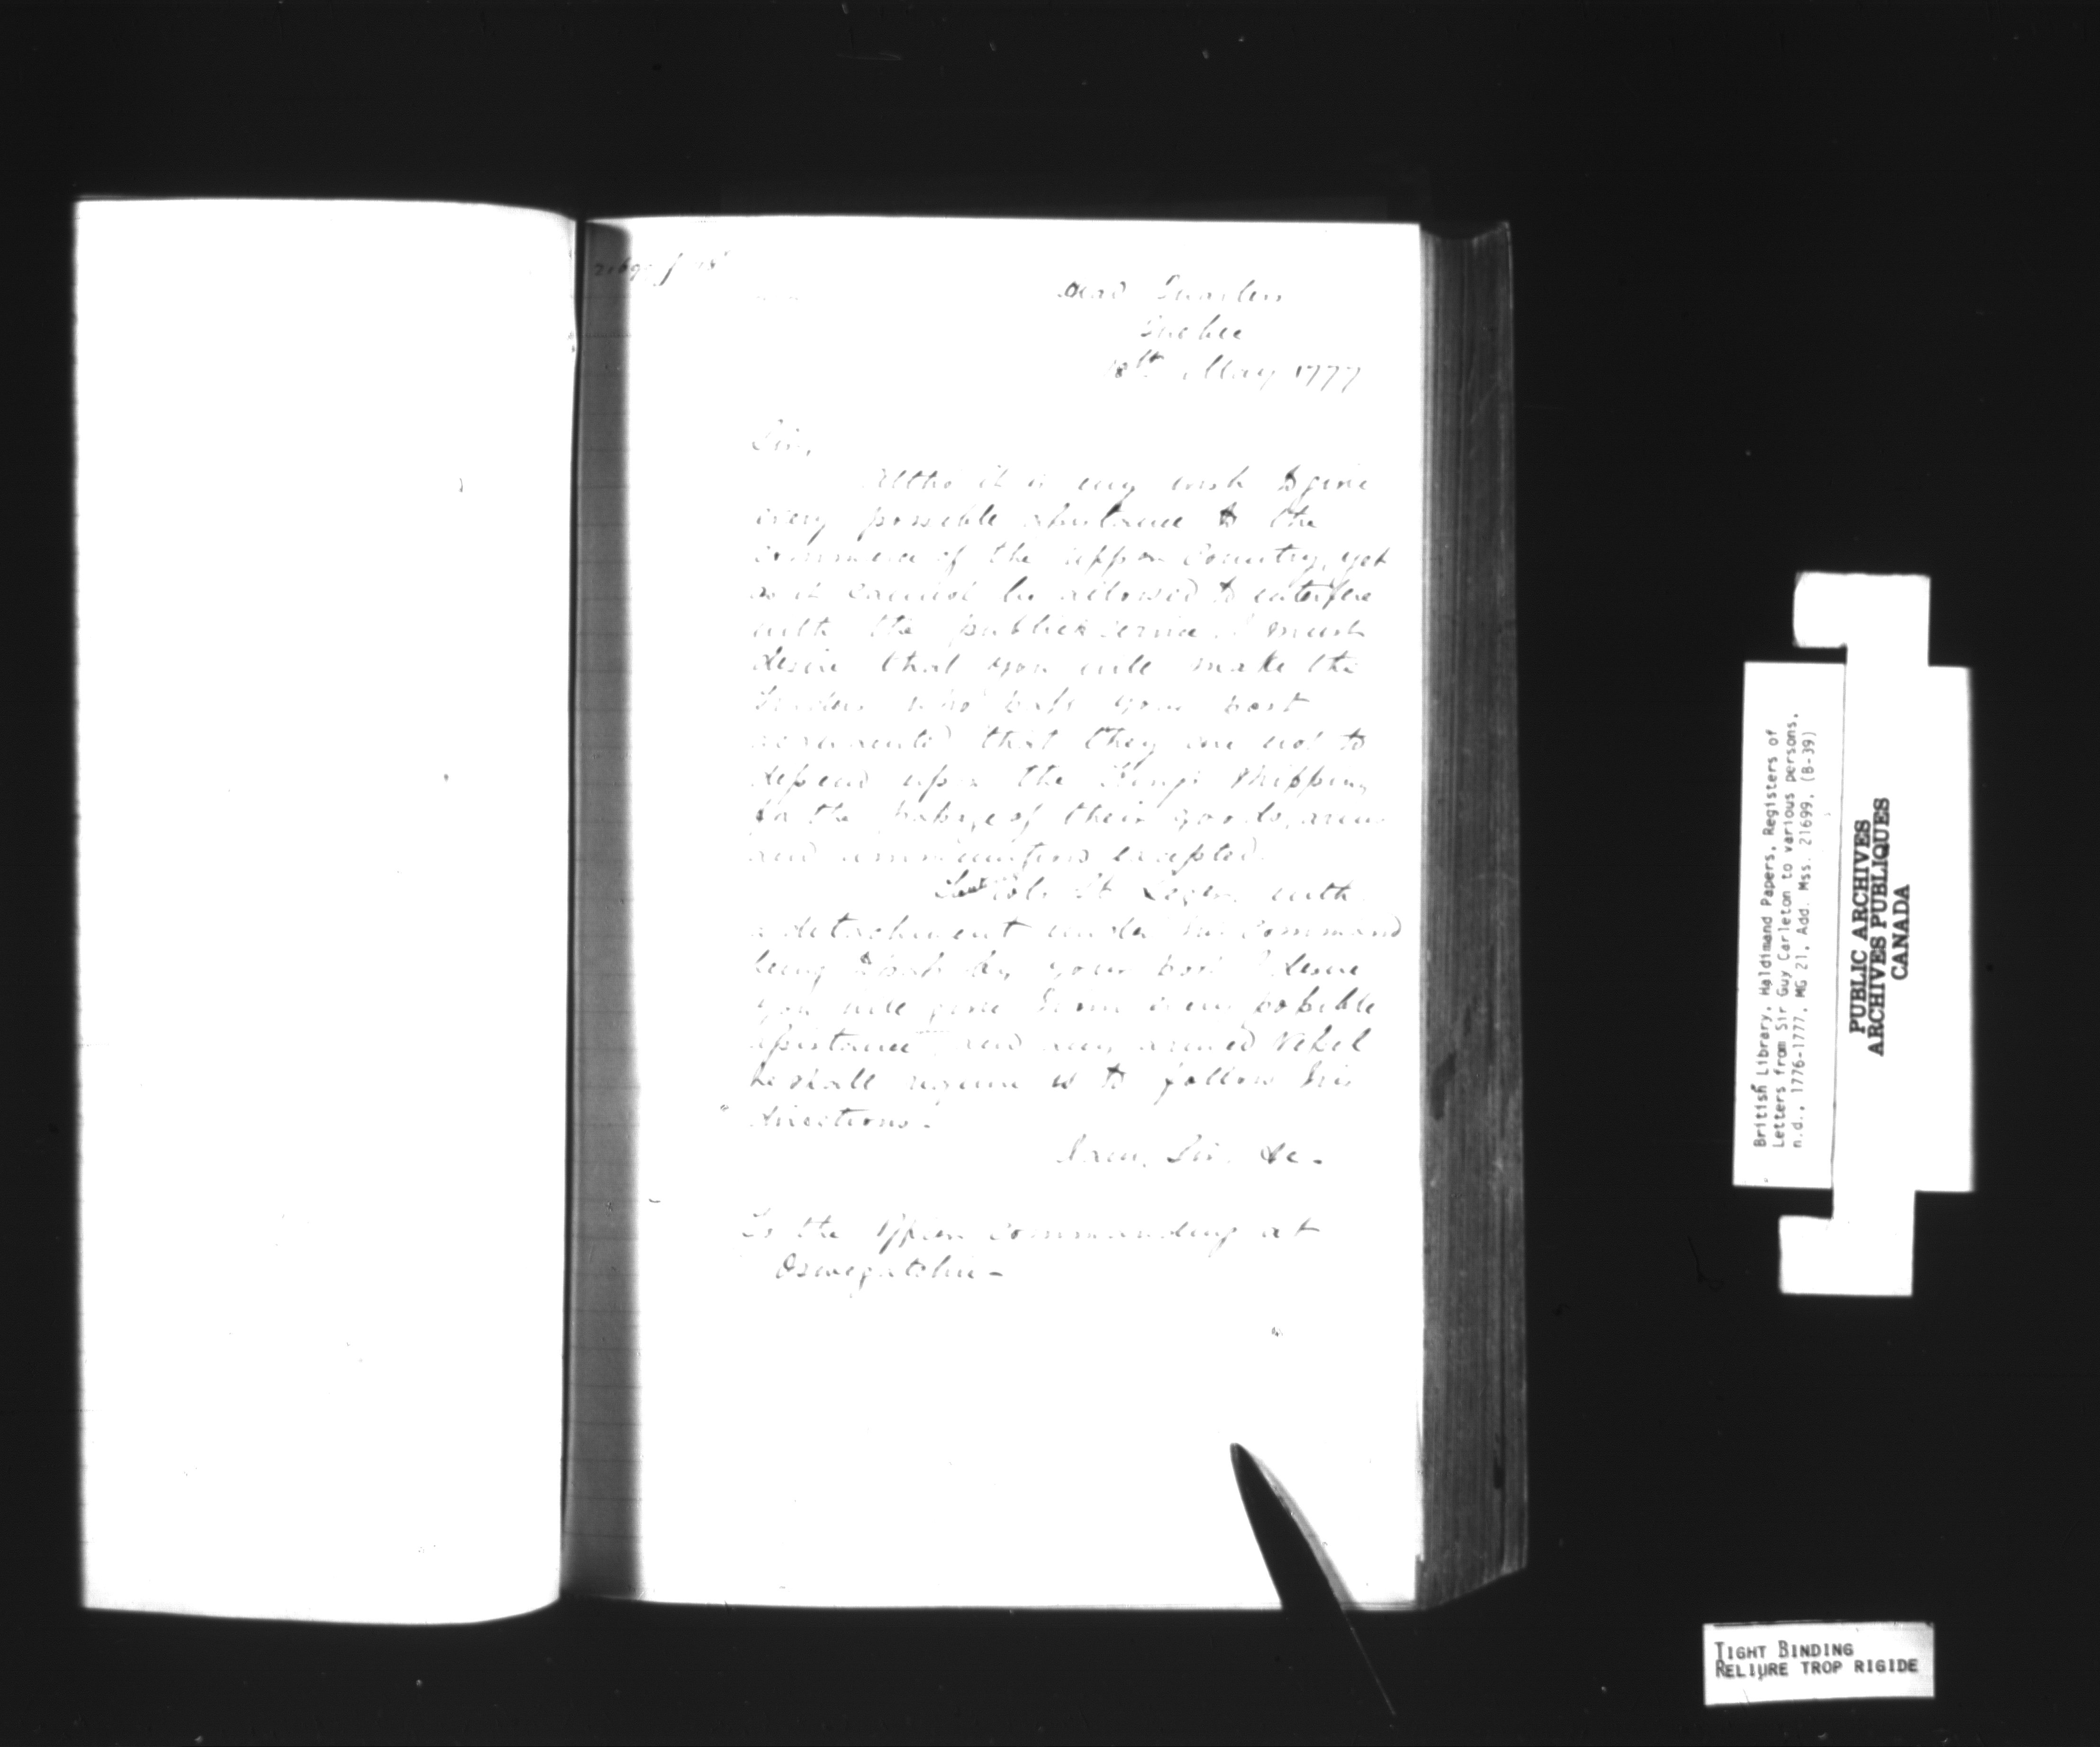 Head Quarters
Quebec
18th May 1777
Sir,
Altho it is my wish to give
every possible assistance to the
commerce of the upper Country, yet
as it cannot be allowed to interfere
with the publick service I must
desire that you will make the
traders who pass your post
acquainted that they are not to
depend upon the Kings shipping
for the passage of their goods, arms
and ammunitions excepted.
Lieut Col: St Leger with
a detachment under his command
being to pass by your post I desire
you will give him every possible
assistance and any armed Vessel
he shall require is to follow his
directions.
I am, Sir, &c -
To the Officer Commanding at
Oswegatchie -
British Library, Haldimand Papers, Registers of
Letters from Sir Guy Carleton to various persons,
n.d., 1776-1777, MG 21, Add. Mss. 21699, (B-39)
PUBLIC ARCHIVES
ARCHIVES PUBLIQUES
CANADA
TIGHT BINDING
RELIURE TROP RIGIDE